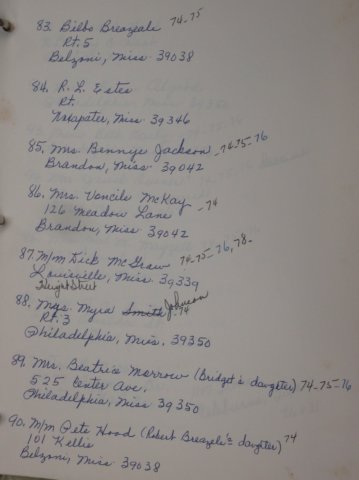 83. Bilbo Breazeale 74-75
Rt. 5
Belzoni, Miss 39038
84. R. L. Estes
Rt.
Noxapater, Miss 39346
85. Mrs. Bennye Jackson - 74-75-76
Brandon, Miss 39042
86. Mrs. Voncile McKay - 74
126 Meadow Lane
Brandon, Miss 39042
87. M/m Dick McGraw 74-75-76, 78-
Louisville, Miss. 39339
Height Street
88. Mrs. Myra Smith Johnson 74
Rt. 3
Philadelphia, Miss. 39350
89. Mrs. Beatrice Morrow (Bridget's daughter) 74-75-76
525 Center Ave.
Philadelphia, Miss 39350
90. M/m Pete Hood (Robert Breazeale's daughter) 74
101 Kellie
Belzoni, Miss 39038